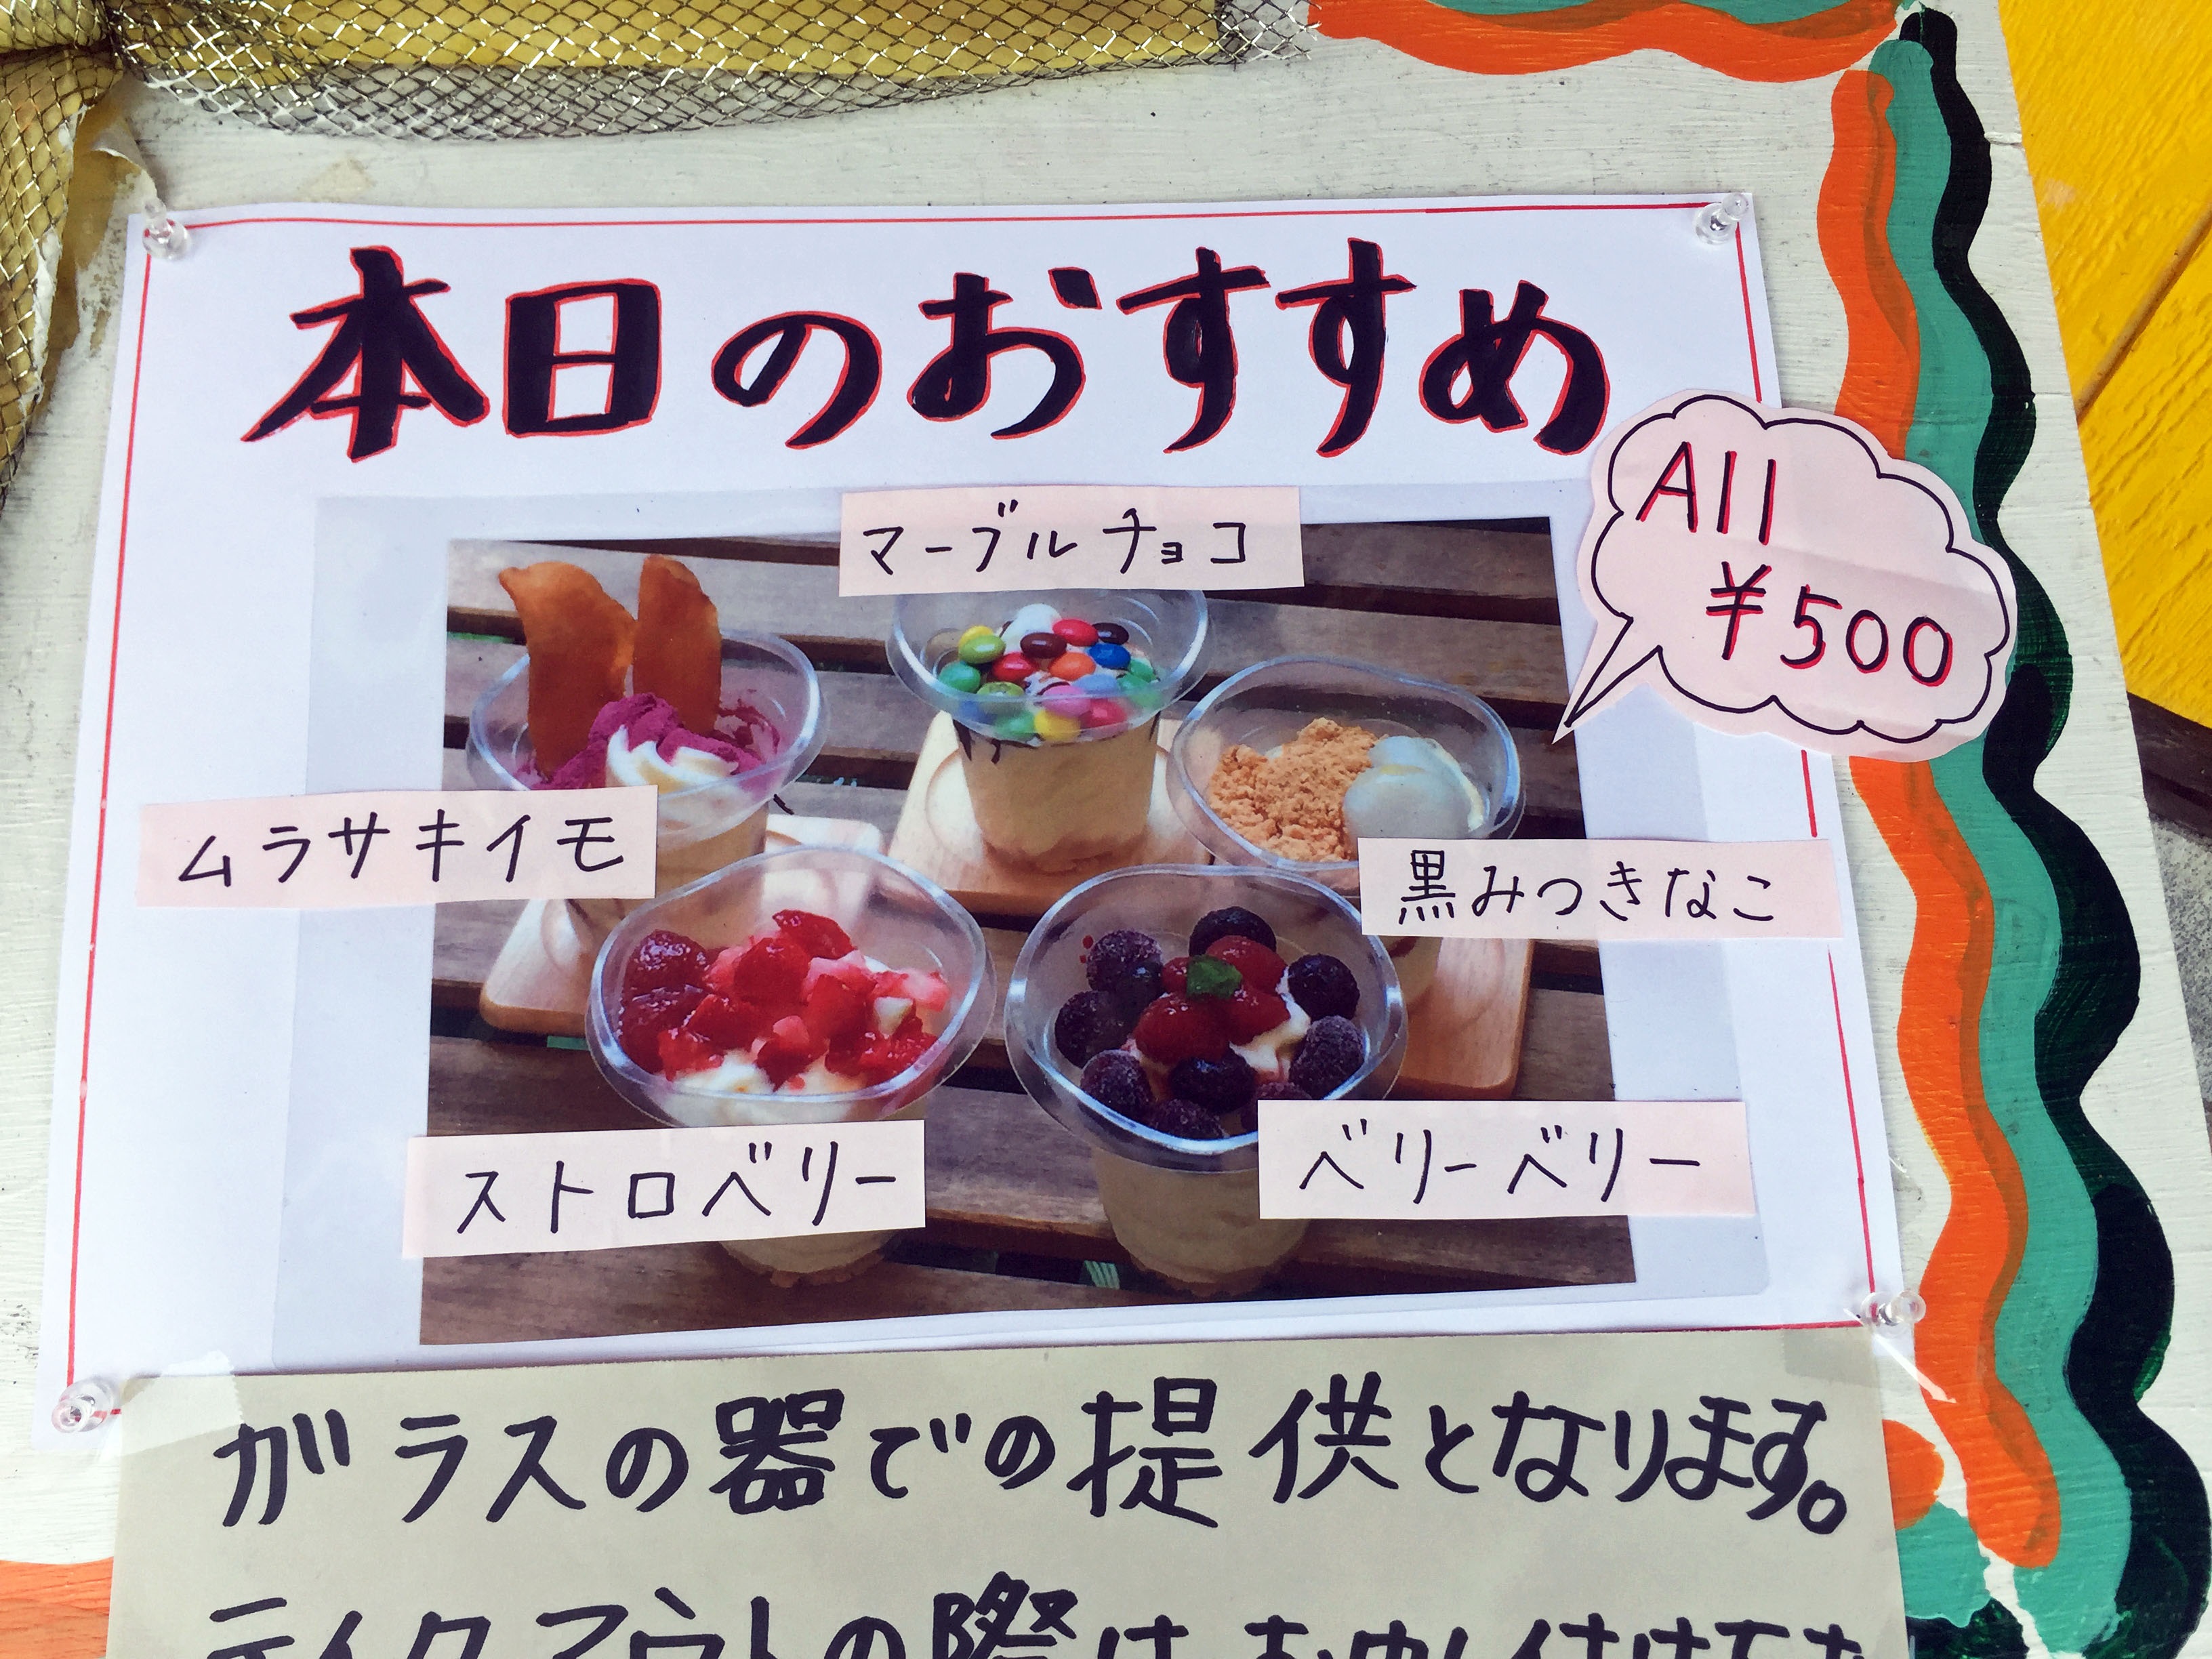 本日のおすすめ
All
¥500
マーブルチョコ
ムラサキイモ
黒みつきなこ
ストロベリー
ベリーベリー
ガラスの器での提供となります。
テイクアウトの際は